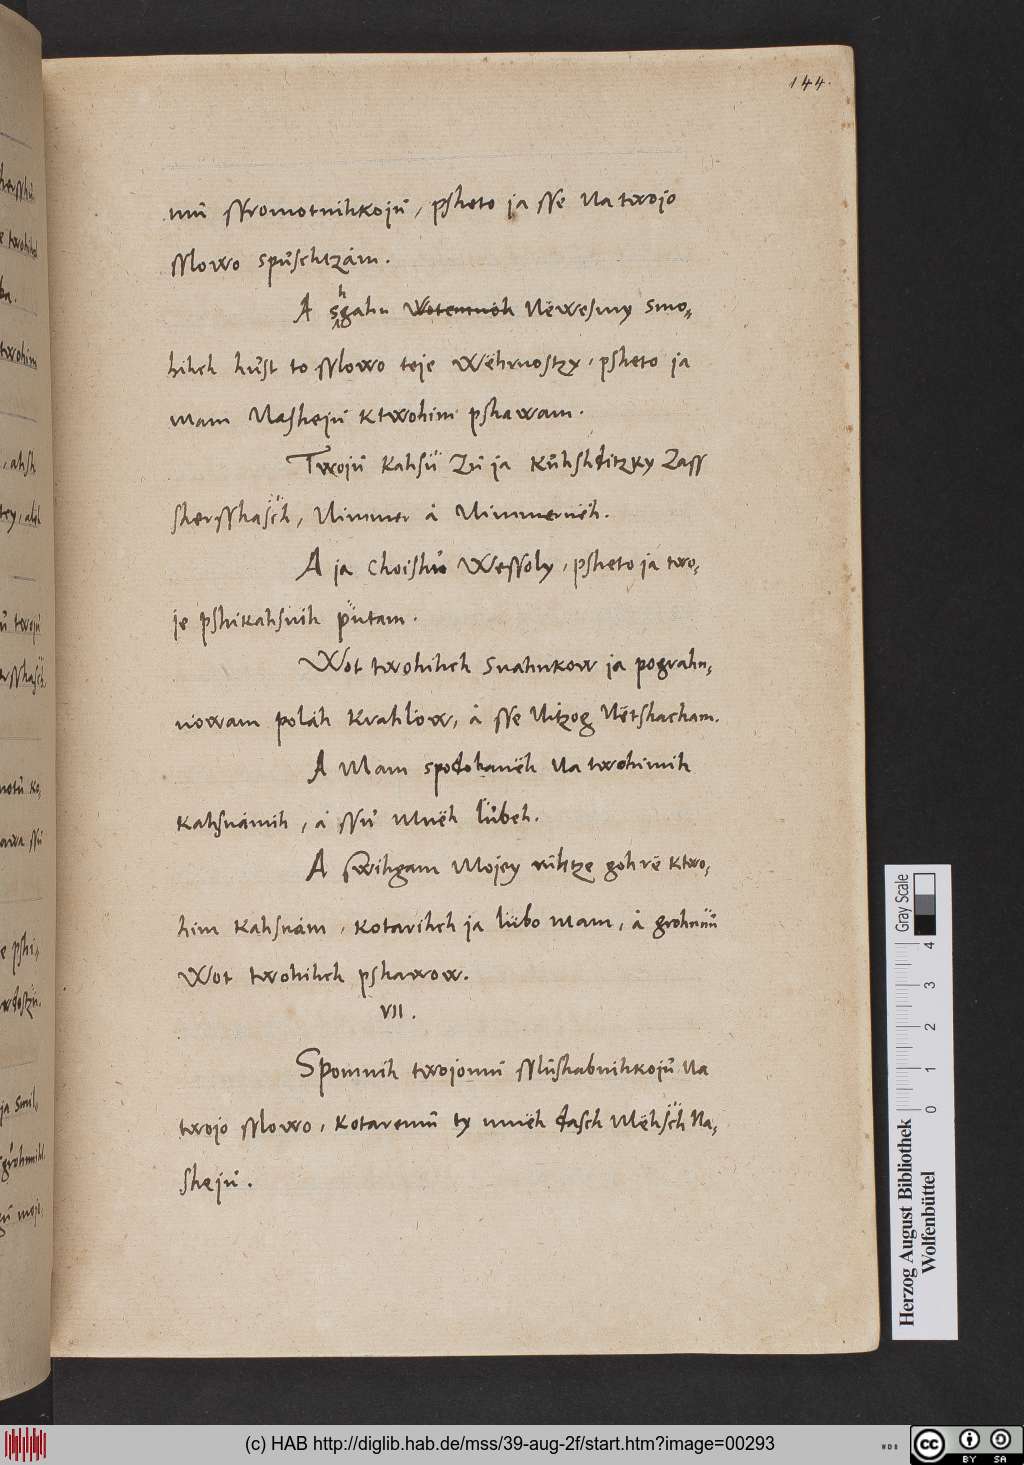 144.
mů ssromotnihkojů, psheto ja sse Na twojo
sslowo spůschtzám.
A shgahn Wotemnóh Nëwesmy Smo-
hihch hůst to sslowo teje Wëhrnostzy, psheto ja
mam Nashejů ktwohim pshawam.
Twojů kahsü Zů ja kůhshditzky Zass
shersshasch, Nimmer å Nimmernëh.
A ja Choishů Wessoly, psheto ja two-
je pshikahsnih pütam.
Wot twohihch Snahnkow ja pograhn-
nowam polåh Krahlów, å sse Nitzog Nëtshacham.
A Mam spodobanëh Na twohimih
kahsnámih, å ssů Mnëh lůbeh.
A Swihgam Mojey růhtze gohrë ktwo-
him kahsnám, kotarihch ja lübo mam, å grohmmů
Wot twohihch pshawow.
VII.
Spomnih twojomů sslůshabnihkojů Na
twojo sslowo, kotaremů ty mnëh dasch Mëhsch Na-
shejů.
Gray Scale
4
3
2
1
0
Herzog August Bibliothek
Wolfenbüttel
(c) HAB http://diglib.hab.de/mss/39-aug-2f/start.htm?image=00293
WDB
cc
BY
SA